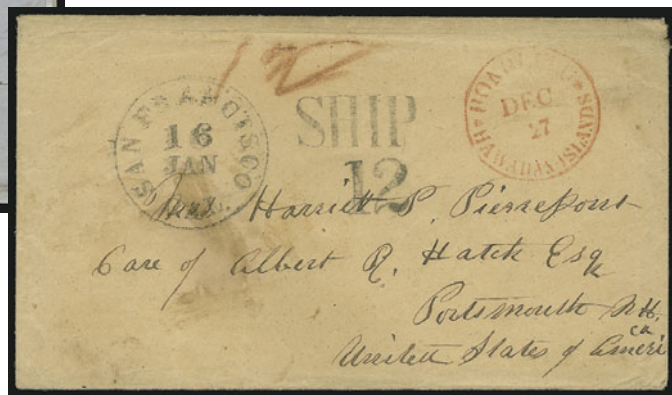 12
SAN FRANCISCO
16
JAN
SHIP
12
HONOLULU ★ HAWAIIAN ISLANDS ★
DEC
27
Harriett P. Pierrepont
Care of Albert R. Hatch Esq
Portsmouth N.H.
United States of America